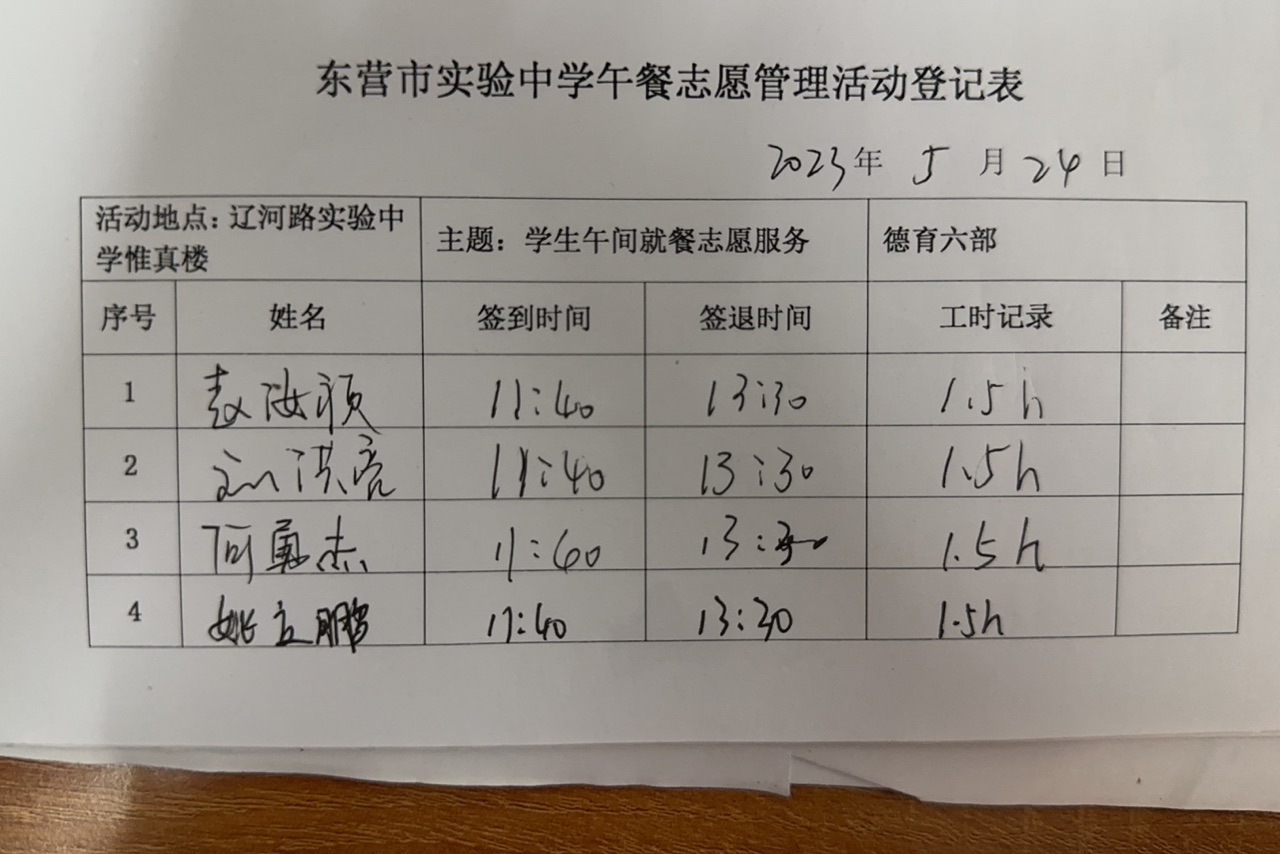 东营市实验中学午餐志愿管理活动登记表
2023年 5 月 24 日
活动地点：辽河路实验中
学惟真楼
主题：学生午间就餐志愿服务
德育六部
序号 姓名 签到时间 签退时间 工时记录 备注
1 赵汝颖 11:40 13:30 1.5h
2 刘洪亮 11:40 13:30 1.5h
3 杰 11:40 13:30 1.5h
4 姚立鹏 11:40 13:30 1.5h